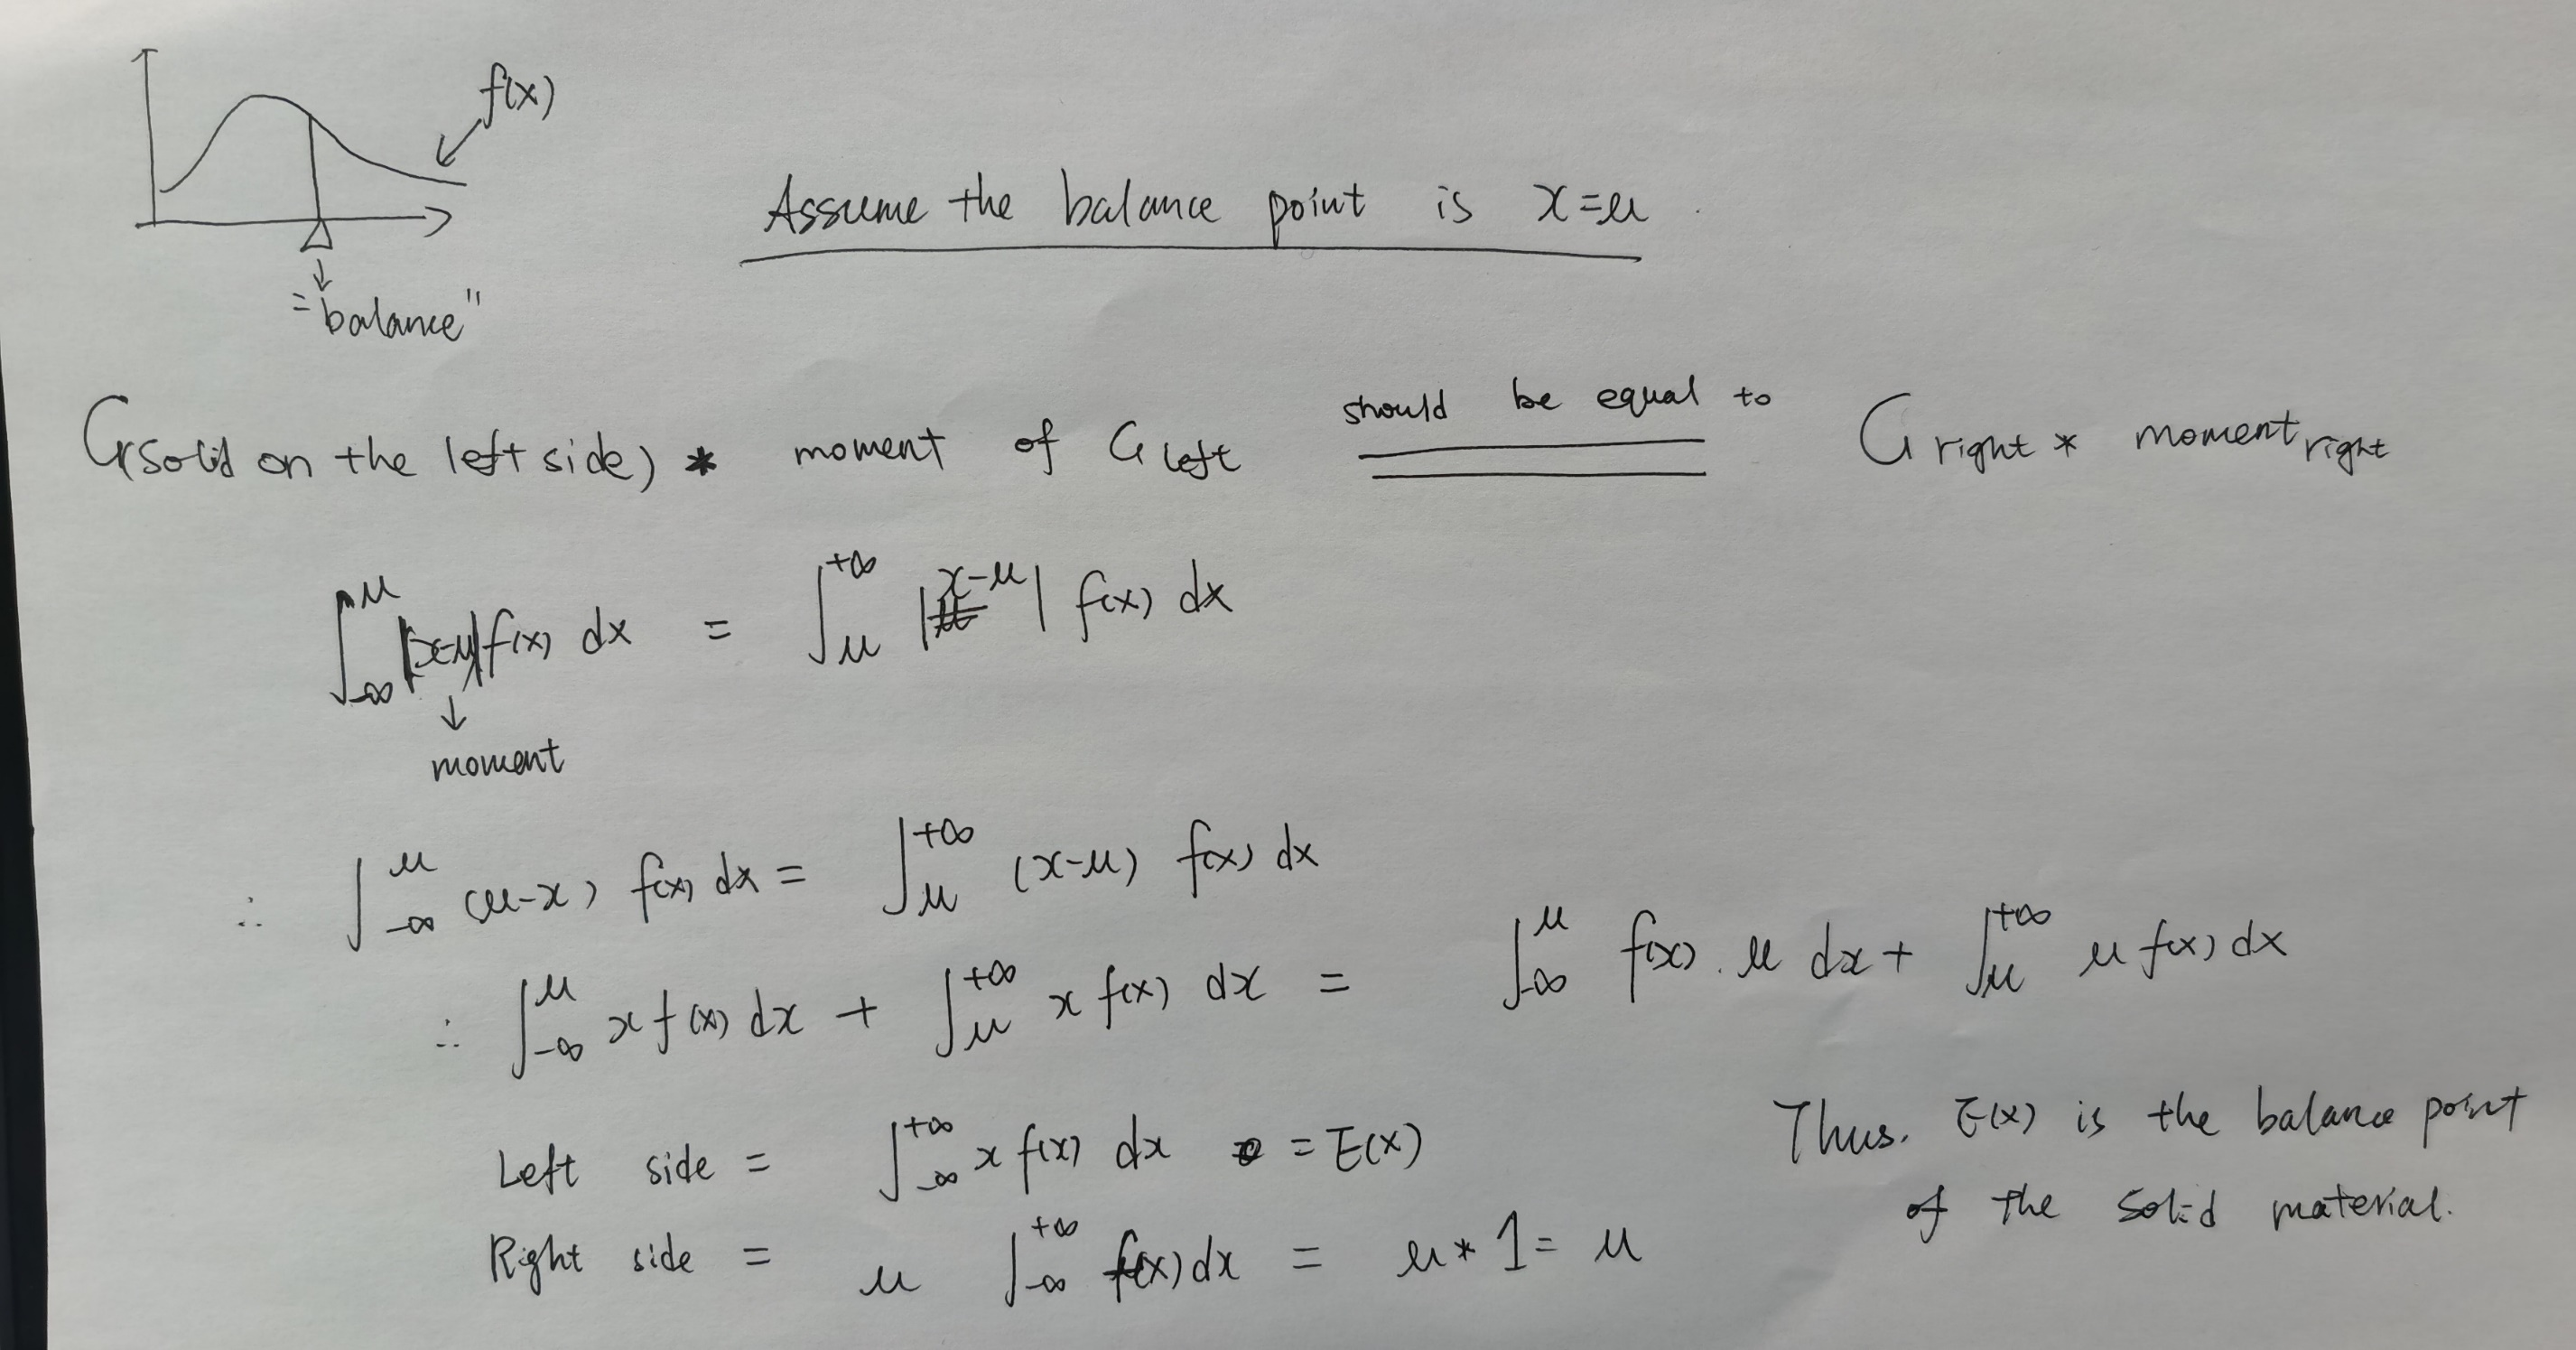 f(x)
Assume the balance point is x=μ.
"balance"
G(solid on the left side) * moment of G left should be equal to G right * moment right
∫_{-∞}^{μ} |x-μ| f(x) dx = ∫_{μ}^{+∞} |x-μ| f(x) dx
moment
∴ ∫_{-∞}^{μ} (μ-x) f(x) dx = ∫_{μ}^{+∞} (x-μ) f(x) dx
∴ ∫_{-∞}^{μ} x f(x) dx + ∫_{μ}^{+∞} x f(x) dx = ∫_{-∞}^{μ} f(x). μ dx + ∫_{μ}^{+∞} μ f(x) dx
Left side = ∫_{-∞}^{+∞} x f(x) dx = E(X)
Right side = μ ∫_{-∞}^{+∞} f(x) dx = μ * 1 = μ
Thus. E(X) is the balance point
of the solid material.